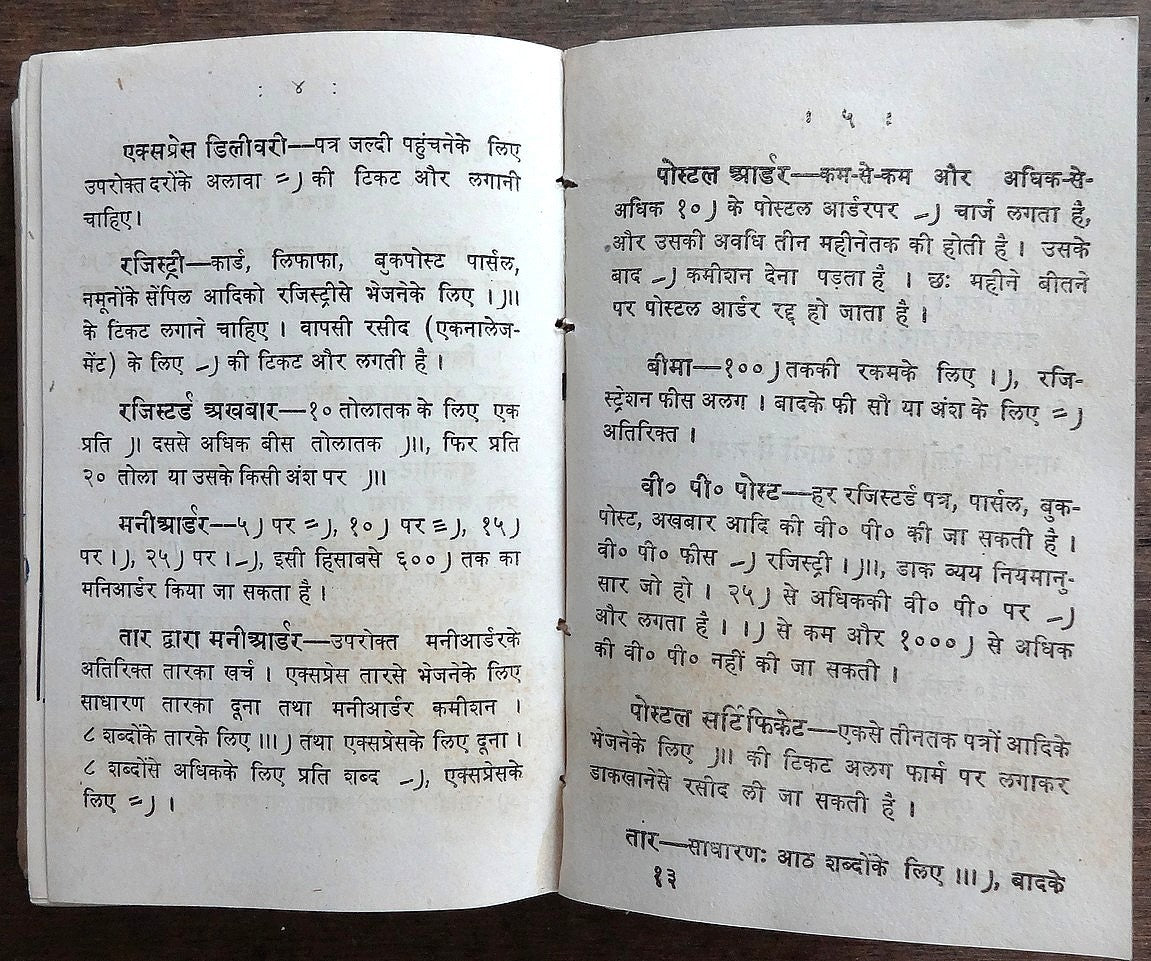 : ४ :
एक्सप्रेस डिलीवरी—पत्र जल्दी पहुंचनेके लिए
उपरोक्त दरोंके अलावा =) की टिकट और लगानी
चाहिए।
रजिस्ट्री—कार्ड, लिफाफा, बुकपोस्ट पार्सल,
नमूनोंके सेंपिल आदिको रजिस्ट्रीसे भेजनेके लिए ।)॥
के टिकट लगाने चाहिए । वापसी रसीद (एकनालेज-
मेंट) के लिए -) की टिकट और लगती है ।
रजिस्टर्ड अखबार—१० तोलातक के लिए एक
प्रति )॥ दससे अधिक बीस तोलातक )॥।, फिर प्रति
२० तोला या उसके किसी अंश पर )॥
मनीआर्डर—५) पर =), १०) पर ≡), १५)
पर ।), २५) पर ।-), इसी हिसाबसे ६००) तक का
मनिआर्डर किया जा सकता है ।
तार द्वारा मनीआर्डर—उपरोक्त मनीआर्डरके
अतिरिक्त तारका खर्च । एक्सप्रेस तारसे भेजनेके लिए
साधारण तारका दूना तथा मनीआर्डर कमीशन ।
८ शब्दोंके तारके लिए ॥।) तथा एक्सप्रेसके लिए दूना ।
८ शब्दोंसे अधिकके लिए प्रति शब्द -), एक्सप्रेसके
लिए =) ।
: ५ :
पोस्टल आर्डर—कम-से-कम और अधिक-से-
अधिक १०) के पोस्टल आर्डरपर -) चार्ज लगता है,
और उसकी अवधि तीन महीनेतक की होती है । उसके
बाद -) कमीशन देना पड़ता है । छः महीने बीतने
पर पोस्टल आर्डर रद्द हो जाता है ।
बीमा—१००) तककी रकमके लिए ।), रजि-
स्ट्रेशन फीस अलग । बादके फी सौ या अंश के लिए =)
अतिरिक्त ।
वी० पी० पोस्ट—हर रजिस्टर्ड पत्र, पार्सल, बुक-
पोस्ट, अखबार आदि की वी० पी० की जा सकती है ।
वी० पी० फीस -) रजिस्ट्री ।)॥, डाक व्यय नियमानु-
सार जो हो । २५) से अधिककी वी० पी० पर -)
और लगता है । ।) से कम और १०००) से अधिक
की वी० पी० नहीं की जा सकती ।
पोस्टल सर्टिफिकेट—एकसे तीनतक पत्रों आदिके
भेजनेके लिए )॥ की टिकट अलग फार्म पर लगाकर
डाकखानेसे रसीद ली जा सकती है ।
तार—साधारणः आठ शब्दोंके लिए ॥।), बादके
१३